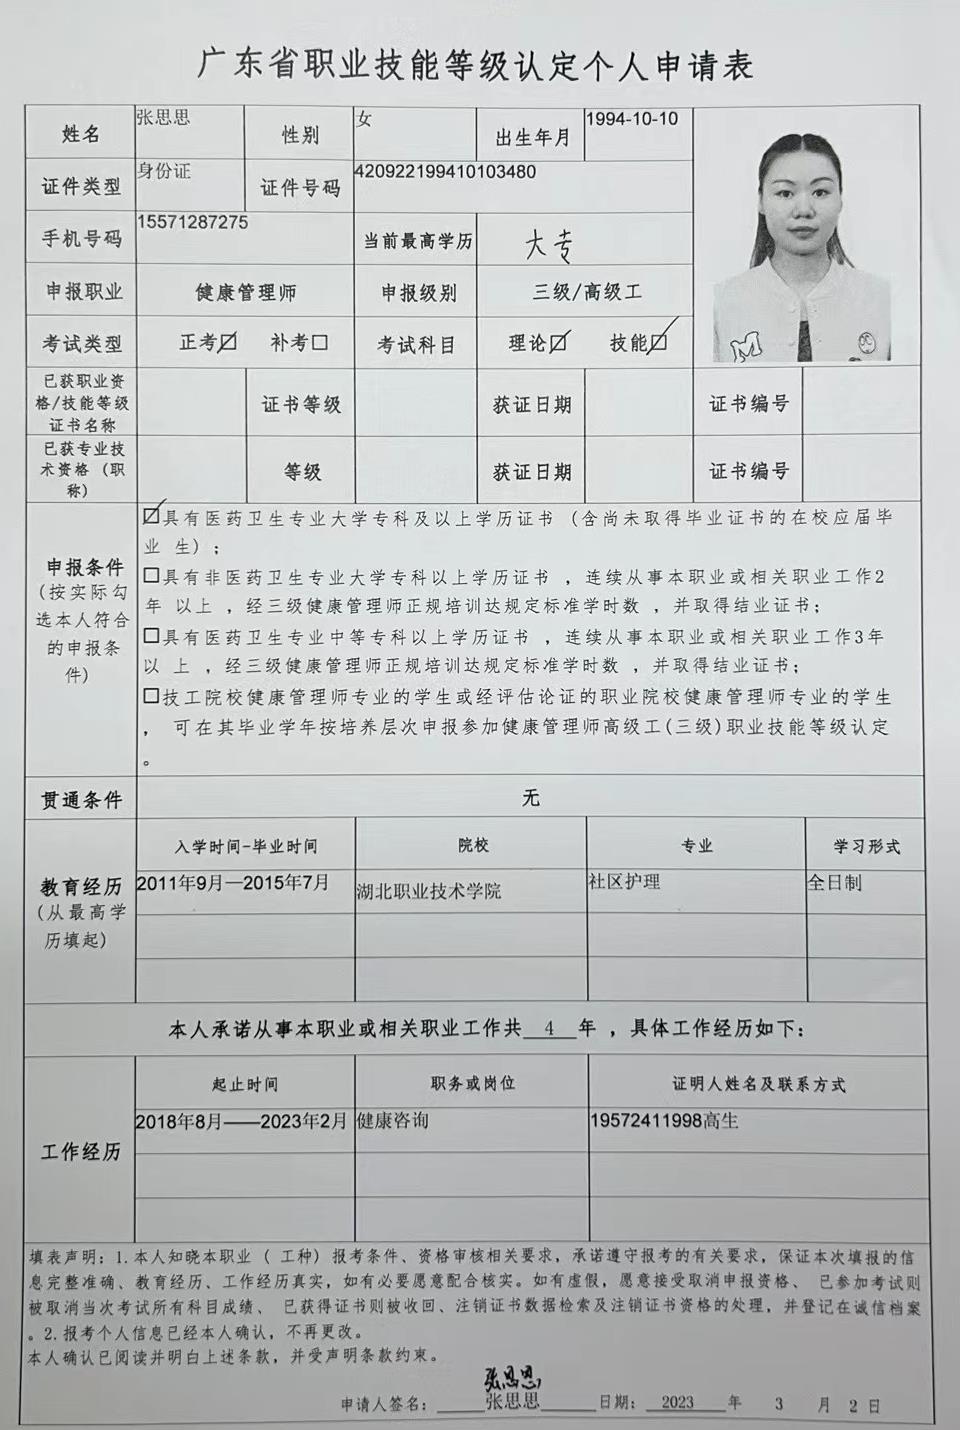 广东省职业技能等级认定个人申请表
姓名 张思思 性别 女 出生年月 1994-10-10
证件类型 身份证 证件号码 420922199410103480
手机号码 15571287275 当前最高学历 大专
申报职业 健康管理师 申报级别 三级/高级工
考试类型 正考☑ 补考☐ 考试科目 理论☑ 技能☑
M
已获职业资
格/技能等级
证书名称 证书等级 获证日期 证书编号
已获专业技
术资格（职
称） 等级 获证日期 证书编号
申报条件
(按实际勾
选本人符合
的申报条
件)
☑具有医药卫生专业大学专科及以上学历证书（含尚未取得毕业证书的在校应届毕
业 生）；
☐具有非医药卫生专业大学专科以上学历证书 ，连续从事本职业或相关职业工作2
年 以上 ，经三级健康管理师正规培训达规定标准学时数 ，并取得结业证书；
☐具有医药卫生专业中等专科以上学历证书 ，连续从事本职业或相关职业工作3年
以 上 ，经三级健康管理师正规培训达规定标准学时数 ，并取得结业证书；
☐技工院校健康管理师专业的学生或经评估论证的职业院校健康管理师专业的学生
， 可在其毕业学年按培养层次申报参加健康管理师高级工(三级)职业技能等级认定
。
贯通条件 无
教育经历
(从最高学
历填起)
入学时间-毕业时间 院校 专业 学习形式
2011年9月—2015年7月 湖北职业技术学院 社区护理 全日制
本人承诺从事本职业或相关职业工作共 4 年 ，具体工作经历如下：
工作经历
起止时间 职务或岗位 证明人姓名及联系方式
2018年8月——2023年2月 健康咨询 19572411998高生
填表声明：1.本人知晓本职业 ( 工种) 报考条件、资格审核相关要求，承诺遵守报考的有关要求，保证本次填报的信
息完整准确、教育经历、工作经历真实，如有必要愿意配合核实。如有虚假，愿意接受取消申报资格、 已参加考试则
被取消当次考试所有科目成绩、 已获得证书则被收回、注销证书数据检索及注销证书资格的处理，并登记在诚信档案
。2.报考个人信息已经本人确认，不再更改。
本人确认已阅读并明白上述条款，并受声明条款约束。
张思思
申请人签名：张思思 日期： 2023 年 3 月 2 日